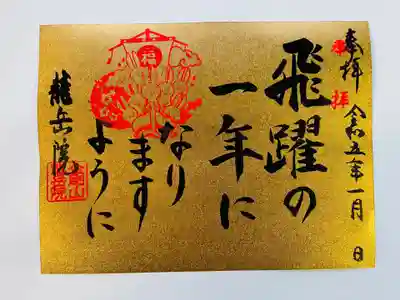 奉拝
令和五年一月 日
飛躍の
一年に
なり
ます
ように
龍岳院
福